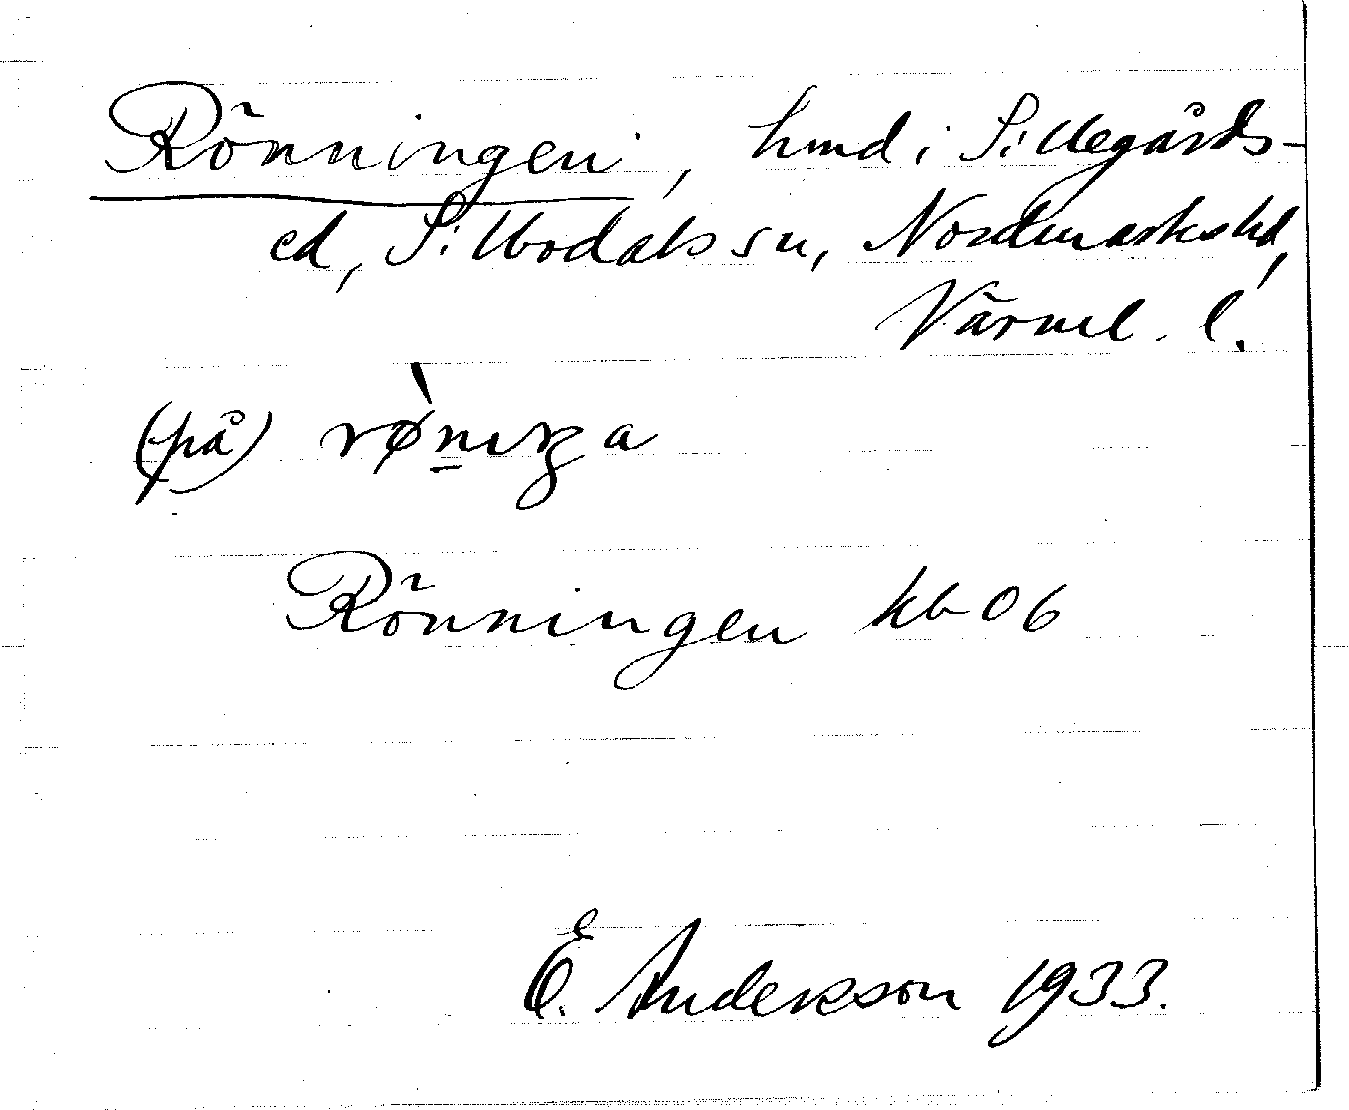 Rönningen, hmd i Sillegårds-
ed, Sillbodals sn, Nordmarks hd,
Värml. l.
(på) rø̀nıŋa
Rönningen kb 06
E. Andersson 1933.